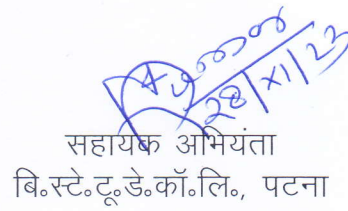 28/XI/23
सहायक अभियंता
बि॰स्टे॰टू॰डे॰कॉ॰लि॰, पटना